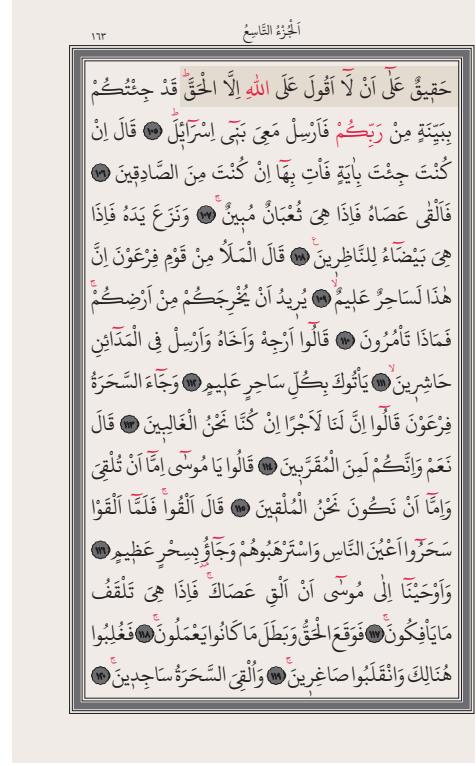 اَلْجُزْءُ التَّاسِعُ
١٦٣
حَق۪يقٌ عَلٰٓى اَنْ لَٓا اَقُولَ عَلَى اللّٰهِ اِلَّا الْحَقَّۜ قَدْ جِئْتُكُمْ
بِبَيِّنَةٍ مِنْ رَبِّكُمْ فَاَرْسِلْ مَعِيَ بَن۪ٓي اِسْرَٓائ۪لَۜ ﴿١٠٥﴾ قَالَ اِنْ
كُنْتَ جِئْتَ بِاٰيَةٍ فَأْتِ بِهَٓا اِنْ كُنْتَ مِنَ الصَّادِق۪ينَ ﴿١٠٦﴾
فَاَلْقٰى عَصَاهُ فَاِذَا هِيَ ثُعْبَانٌ مُب۪ينٌۚ ﴿١٠٧﴾ وَنَزَعَ يَدَهُ فَاِذَا
هِيَ بَيْضَٓاءُ لِلنَّاظِر۪ينَ۟ ﴿١٠٨﴾ قَالَ الْمَلَأُ مِنْ قَوْمِ فِرْعَوْنَ اِنَّ
هٰذَا لَسَاحِرٌ عَل۪يمٌۙ ﴿١٠٩﴾ يُر۪يدُ اَنْ يُخْرِجَكُمْ مِنْ اَرْضِكُمْۚ
فَمَاذَا تَأْمُرُونَ ﴿١١٠﴾ قَالُٓوا اَرْجِهْ وَاَخَاهُ وَاَرْسِلْ فِي الْمَدَٓائِنِ
حَاشِر۪ينَۙ ﴿١١١﴾ يَأْتُوكَ بِكُلِّ سَاحِرٍ عَل۪يمٍ ﴿١١٢﴾ وَجَٓاءَ السَّحَرَةُ
فِرْعَوْنَ قَالُٓوا اِنَّ لَنَا لَاَجْرًا اِنْ كُنَّا نَحْنُ الْغَالِب۪ينَ ﴿١١٣﴾ قَالَ
نَعَمْ وَاِنَّكُمْ لَمِنَ الْمُقَرَّب۪ينَ ﴿١١٤﴾ قَالُوا يَا مُوسٰٓى اِمَّٓا اَنْ تُلْقِيَ
وَاِمَّٓا اَنْ نَكُونَ نَحْنُ الْمُلْق۪ينَ ﴿١١٥﴾ قَالَ اَلْقُواۚ فَلَمَّٓا اَلْقَوْا
سَحَرُٓوا اَعْيُنَ النَّاسِ وَاسْتَرْهَبُوهُمْ وَجَٓاؤُ۫ بِسِحْرٍ عَظ۪يمٍ ﴿١١٦﴾
وَاَوْحَيْنَٓا اِلٰى مُوسٰٓى اَنْ اَلْقِ عَصَاكَۚ فَاِذَا هِيَ تَلْقَفُ
مَا يَأْفِكُونَۚ ﴿١١٧﴾ فَوَقَعَ الْحَقُّ وَبَطَلَ مَا كَانُوا يَعْمَلُونَۚ ﴿١١٨﴾ فَغُلِبُوا
هُنَالِكَ وَانْقَلَبُوا صَاغِر۪ينَۚ ﴿١١٩﴾ وَاُلْقِيَ السَّحَرَةُ سَاجِد۪ينَۚ ﴿١٢٠﴾